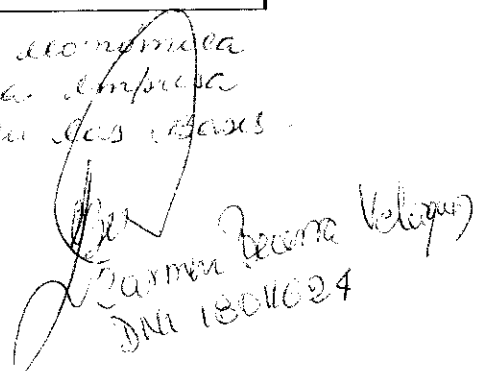 económica
a empresa
en las Bases.
Carmen Becerra Velasquez
DNI 18011024